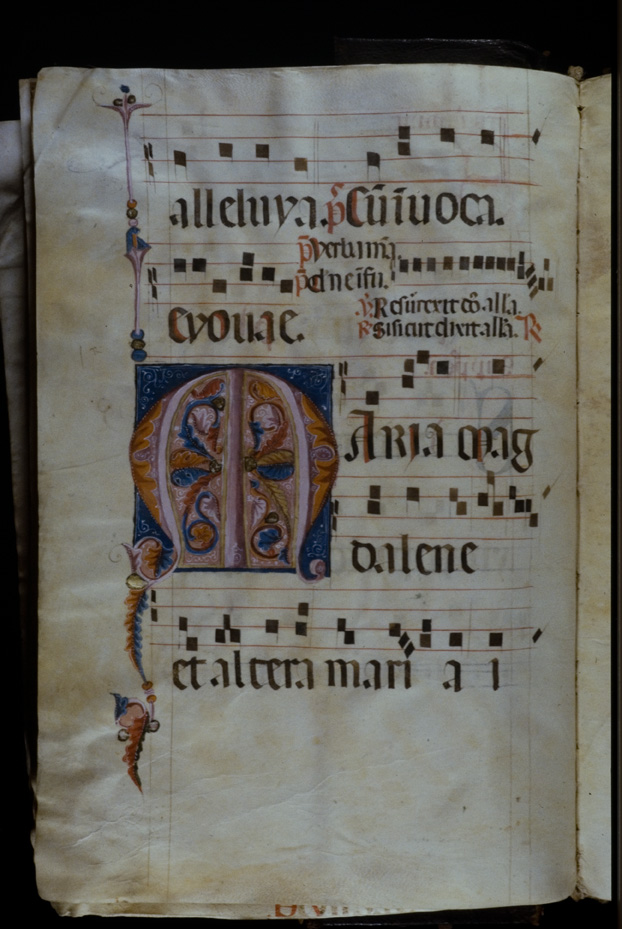 alleluya. p̄s Cū īuoca.
p̄s Verba m̄a.
p̄s dne
evouae.
℣. Resurrexit alla.
℟. Sicut dixit alla. ℟
MARIA mag
dalene
et altera mari a i